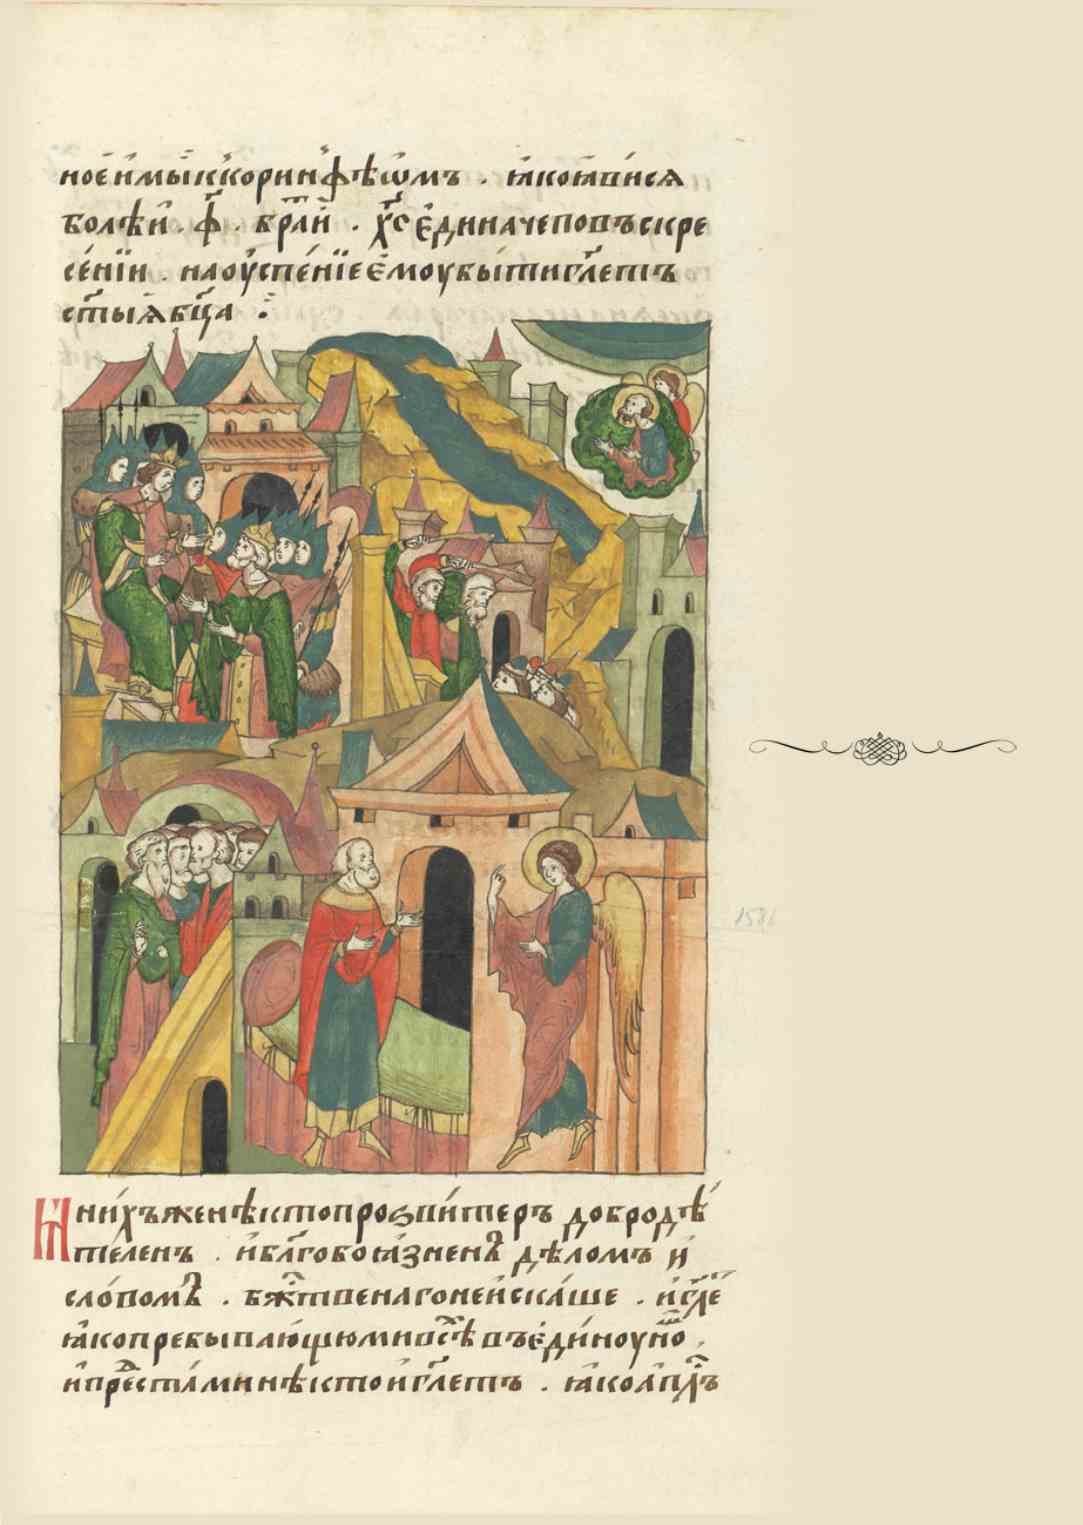 ное имы к коринфѣѡмъ . ꙗко ꙗвися
болѣи . ф҃ . братїи . х҃с единаче по въскре
сенїи . на оуспенїе емоу быти гл҃еть
ст҃ыѧ бц҃а ⁘
И нихъ же нѣкто прозвитеръ добродѣ
теленъ . и бл҃гобоꙗзненъ дѣломъ и
словомъ . бжтвенаго неискаше . и гл҃е
ꙗко пребывающю ми всѣ въ единоу но
и преста ми нѣкто и гл҃еть . ꙗко ап҃лъ
1586